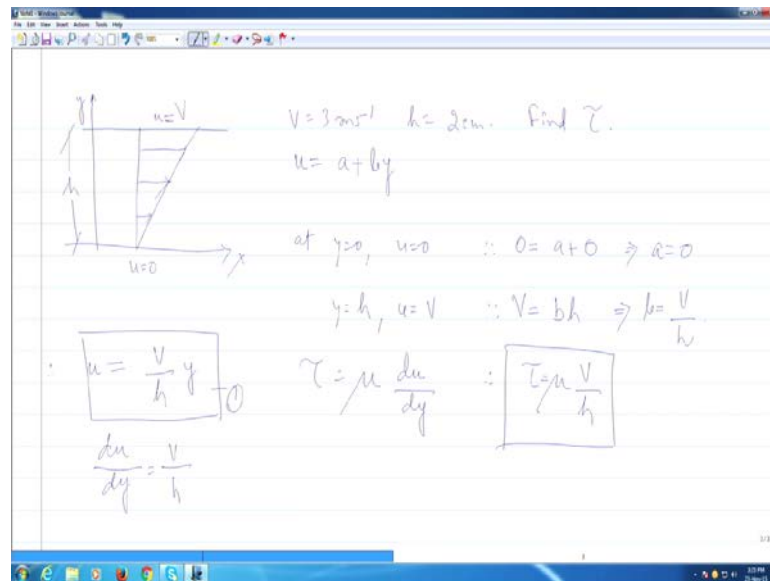 File Edit View Insert Actions Tools Help
y
u=V
V=3ms⁻¹ h=2cm. Find τ.
u= a+by
h
at y=0, u=0 ∴ 0= a+0 ⇒ a=0
x
u=0
y=h, u=V ∴ V= bh ⇒ b= V/h
∴ u= V/h y ①
τ= μ du/dy ∴ τ=μ V/h
du/dy = V/h